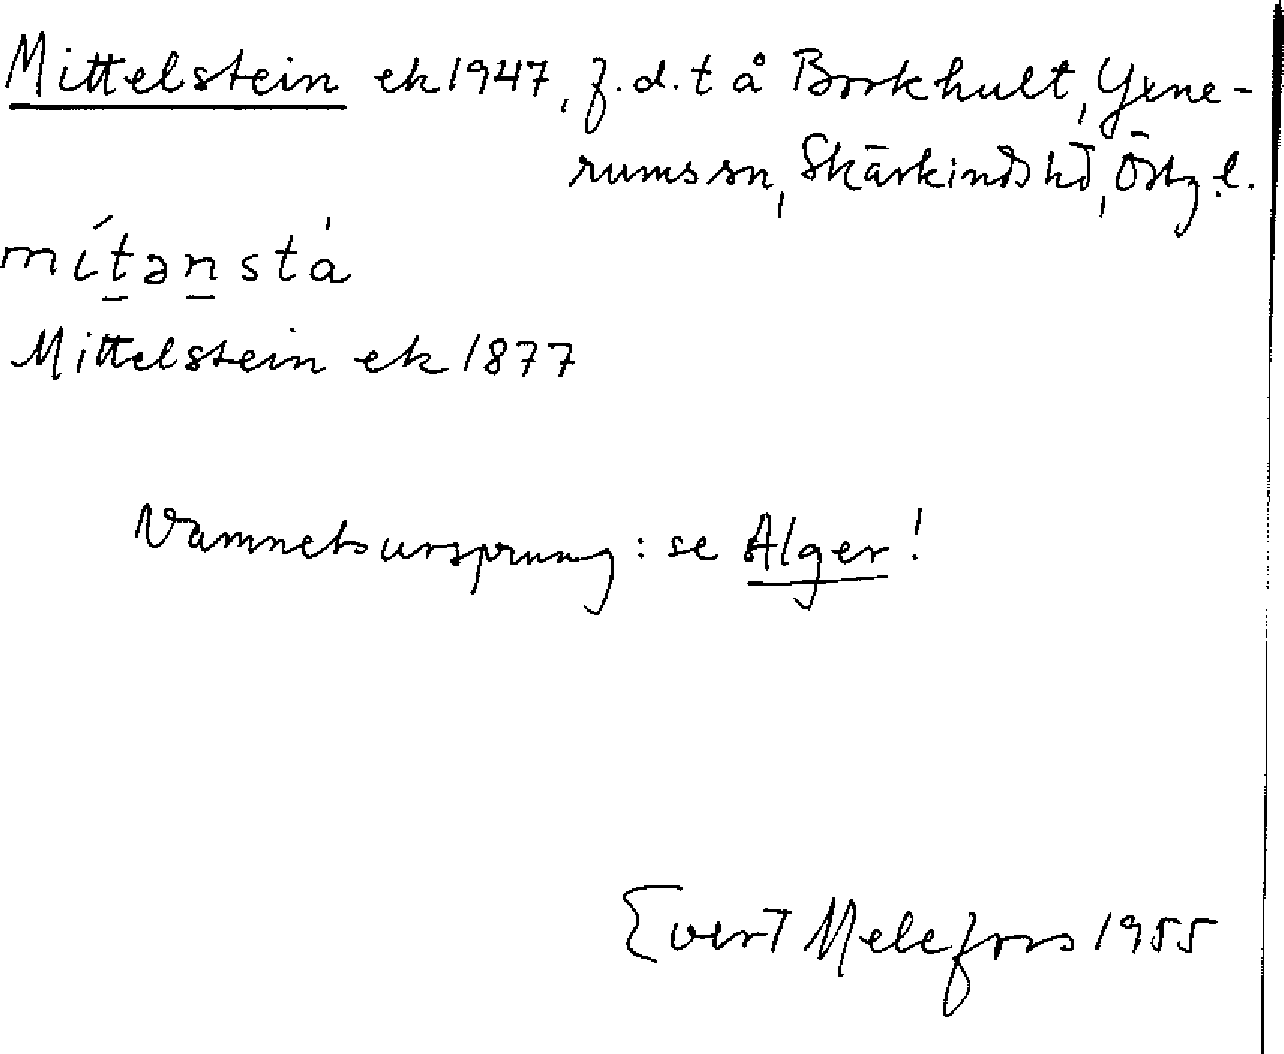 Mittelstein ek 1947, f.d. t å Borkhult, Yxne-
rums sn, Skärkinds hd, Östg. l.
mítanstà
Mittelstein ek 1877
Namnets ursprung: se Alger!
Evert Melefors 1955